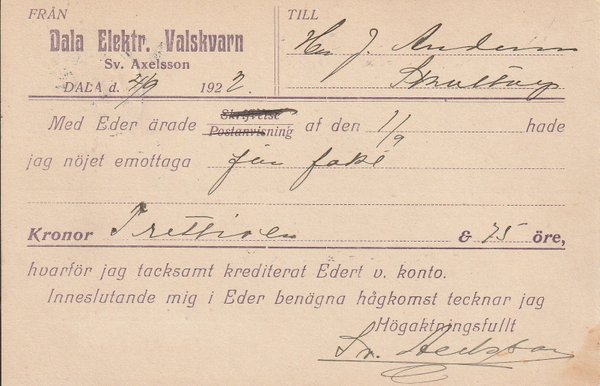 FRÅN
Dala Elektr. Valskvarn
Sv. Axelsson
DALA d. 2/9 1922
TILL
Herr J. Andersson
Med Eder ärade Skrifvelse
Postanvisning af den 1/9 hade
jag nöjet emottaga för
Kronor & 75 öre,
hvarför jag tacksamt krediterat Edert v. konto.
Inneslutande mig i Eder benägna hågkomst tecknar jag
Högaktningsfullt
Sv. Axelsson